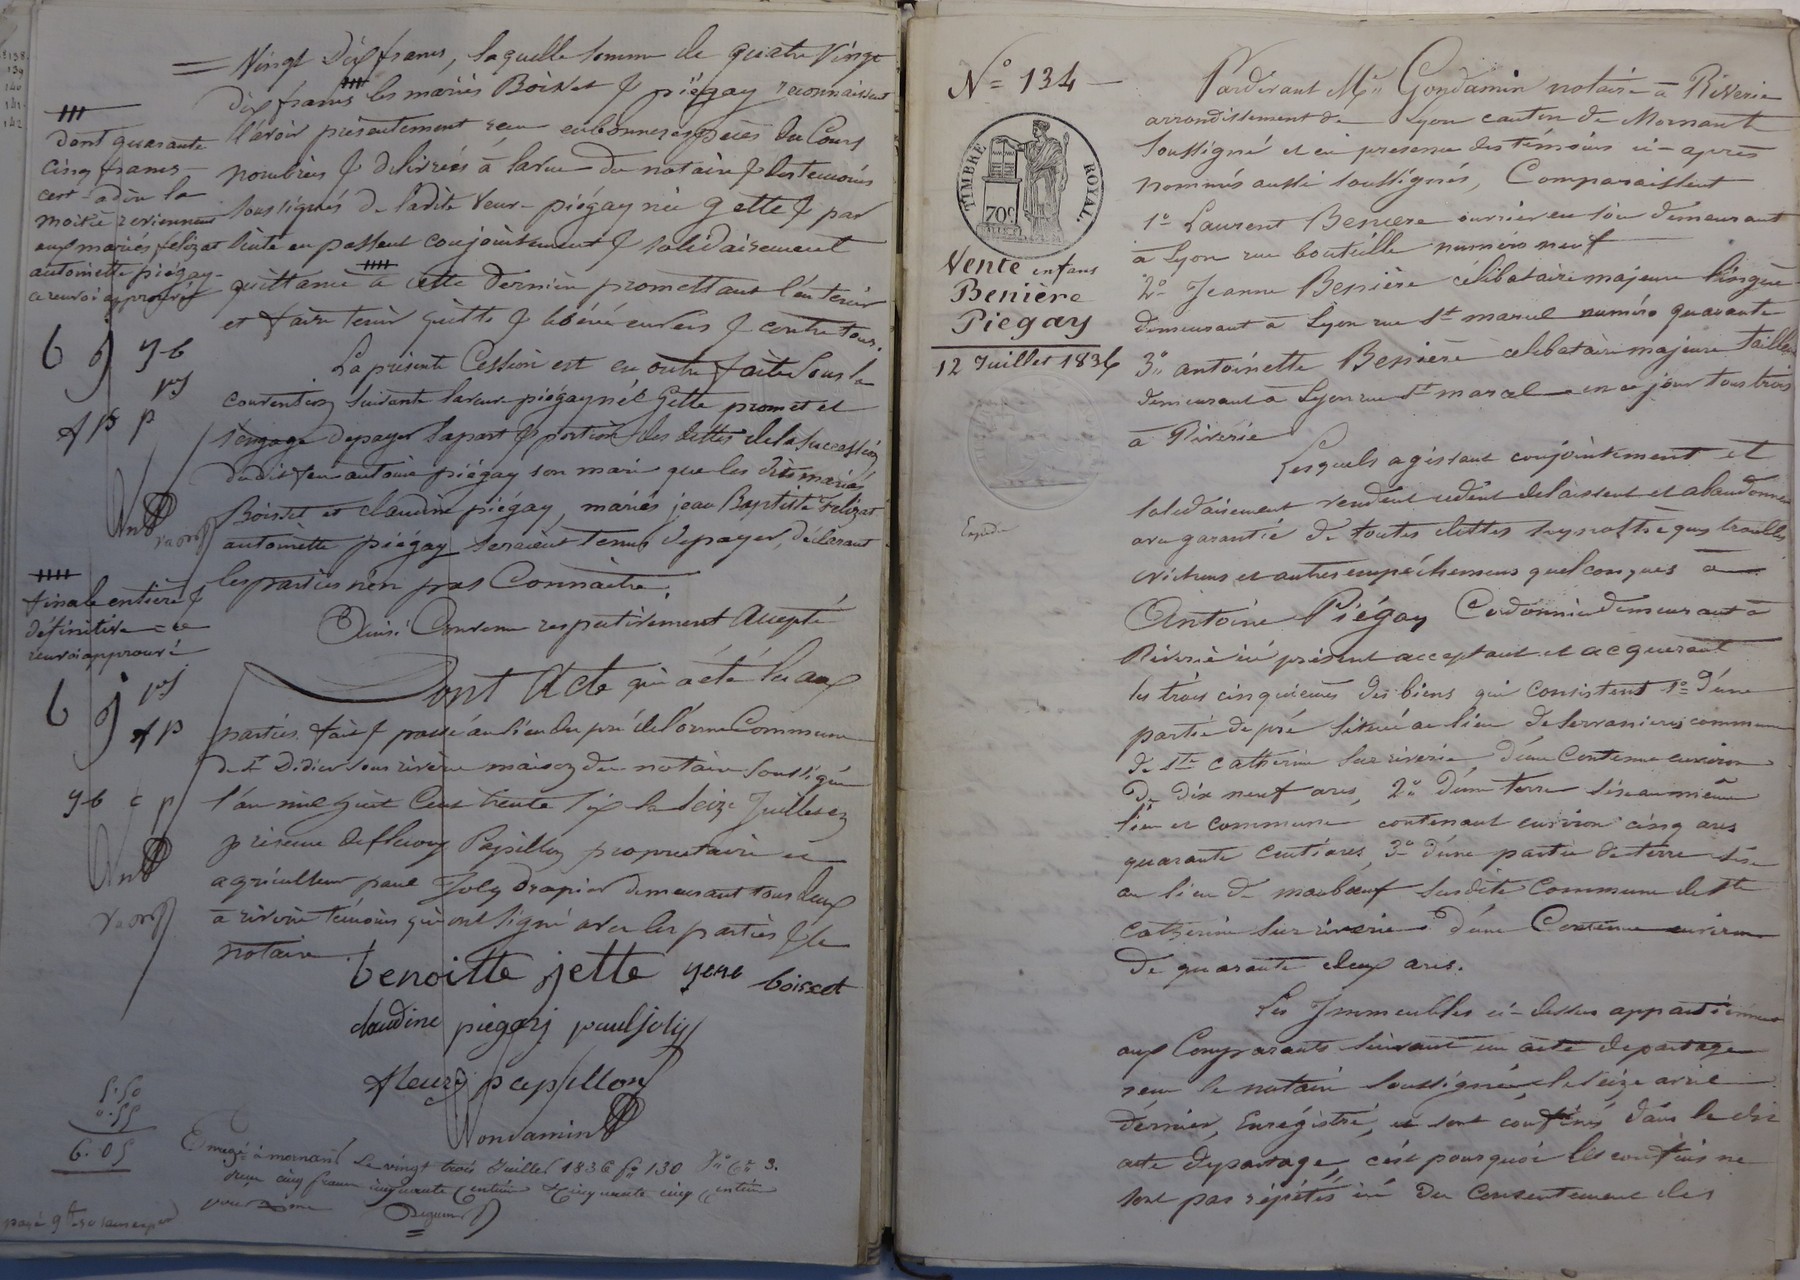 Vingt dix francs, laquelle somme de quatre vingt
dix francs les mariés Boisset & piégay reconnaissent
l'avoir présentement reçu en bonnes espèces du Cours
nombrées & délivrées à la vue du notaire & des témoins
soussignés de ladite veuve piégay née gette & par
suite en passent conjointement & solidairement
quittance à cette dernière promettant l'en tenir
et faire tenir quitte & libéré envers & contre tous.
La présente Cession est en outre faite sous la
convention suivante la veuve piégay née Gette promet et
s'engage de payer la part & portion des dettes de la succession
dudit feu antoine piégay son mari que les dits mariés
Boisset et claudine piégay, mariés jean Baptiste Felizat
antoinette piégay seraient tenus de payer, déclarant
les parties n'en pas Connaitre.
Ainsi Convenu respectivement Accepté
Dont Acte qui a été lu aux
parties. fait & passé au lieu du pré de l'orme Commune
de St Didier sous riverie maison du notaire soussigné
l'an mil huit Cent trente six le seize Juillet en
présence de fleury Papillon propriétaire et
agriculteur paul Joly drapier demeurant tous deux
à riverie témoins qui ont signé avec les parties & le
notaire
benoitte jette yene boisset
claudine piegay paul joly
fleury papillon
Gondamin
Enregé à mornant le vingt trois Juillet 1836 fo 130 Vo Ce 3.
reçu cinq francs cinquante Centimes & cinquante cinq Centimes
pour dixme
dont quarante
cinq francs
cest-adire la
moitié reviennent
aux mariés felizat
antoinette piégay
ce renvoi approuvé
b j y-b
pj
fp p
finale entière &
définitive ce
renvoi approuvé
b j pj
fp
y-b c p
5.50
0.55
6.05
138
139
140
141
142
No 134
TIMBRE ROYAL.
70c
Vente en fans
Benière
Piegay
12 Juillet 1836
Expédié
Pardevant Me Gondamin notaire à Riverie
arrondissement de Lyon canton de Mornant
soussigné et en presence des témoins ci-après
nommés aussi soussignés, Comparaissent
1o Laurent Beniere ouvrier en soie demeurant
à Lyon rue bouteille numéro neuf
2o Jeanne Benière célibataire majeure lingère
demeurant à Lyon rue St marcel numéro quarante
3o antoinette Benière célibataire majeure tailleuse
demeurant à Lyon rue St marcel en ce jour tous trois
à Riverie
Lesquels agissant conjointement et
solidairement vendent cedent delaissent et abandonnent
avec garantie de toutes dettes hypothèques troubles
évictions et autres empéchemens quelconques à
Antoine Piégay Cordonnier demeurant à
Riverie ici présent acceptant et acquérant
les trois cinquièmes des biens qui consistent 1o d'une
partie de pré située au lieu de servanieres commune
de Ste catherine sur riverie d'une contenue environ
de dix neuf ares, 2o d'une terre sise au même
lieu et commune contenant environ cinq ares
quarante centiares, 3o d'une partie de terre sise
au lieu de maubœuf susdite Commune de Ste
catherine sur riverie d'une Contenue environ
de quarante deux ares.
Les Immeubles ci-dessus appartiennent
aux Comparants suivant un acte de partage
reçu le notaire soussigné le seize avril
dernier, Enrégistré, et sont confinés dans le dit
acte de partage, c'est pourquoi les confins ne
sont pas répétés ici du Consentement des